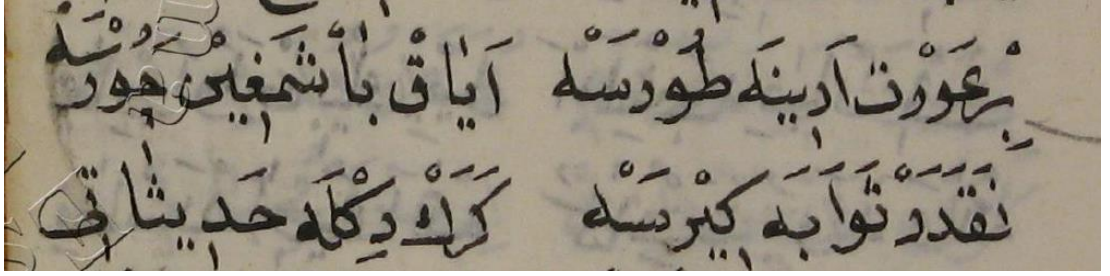 بِرْ عَوْرَتْ اَرِينَه طُوْرَسَهْ اَيَاقْ بَاشْمَغِينْ چَوُرْسَهْ
نَقَدَرْ ثَوَابَه كِيْرَسَهْ كَرَكْ دِكْلَه حَدِيثَاتِى